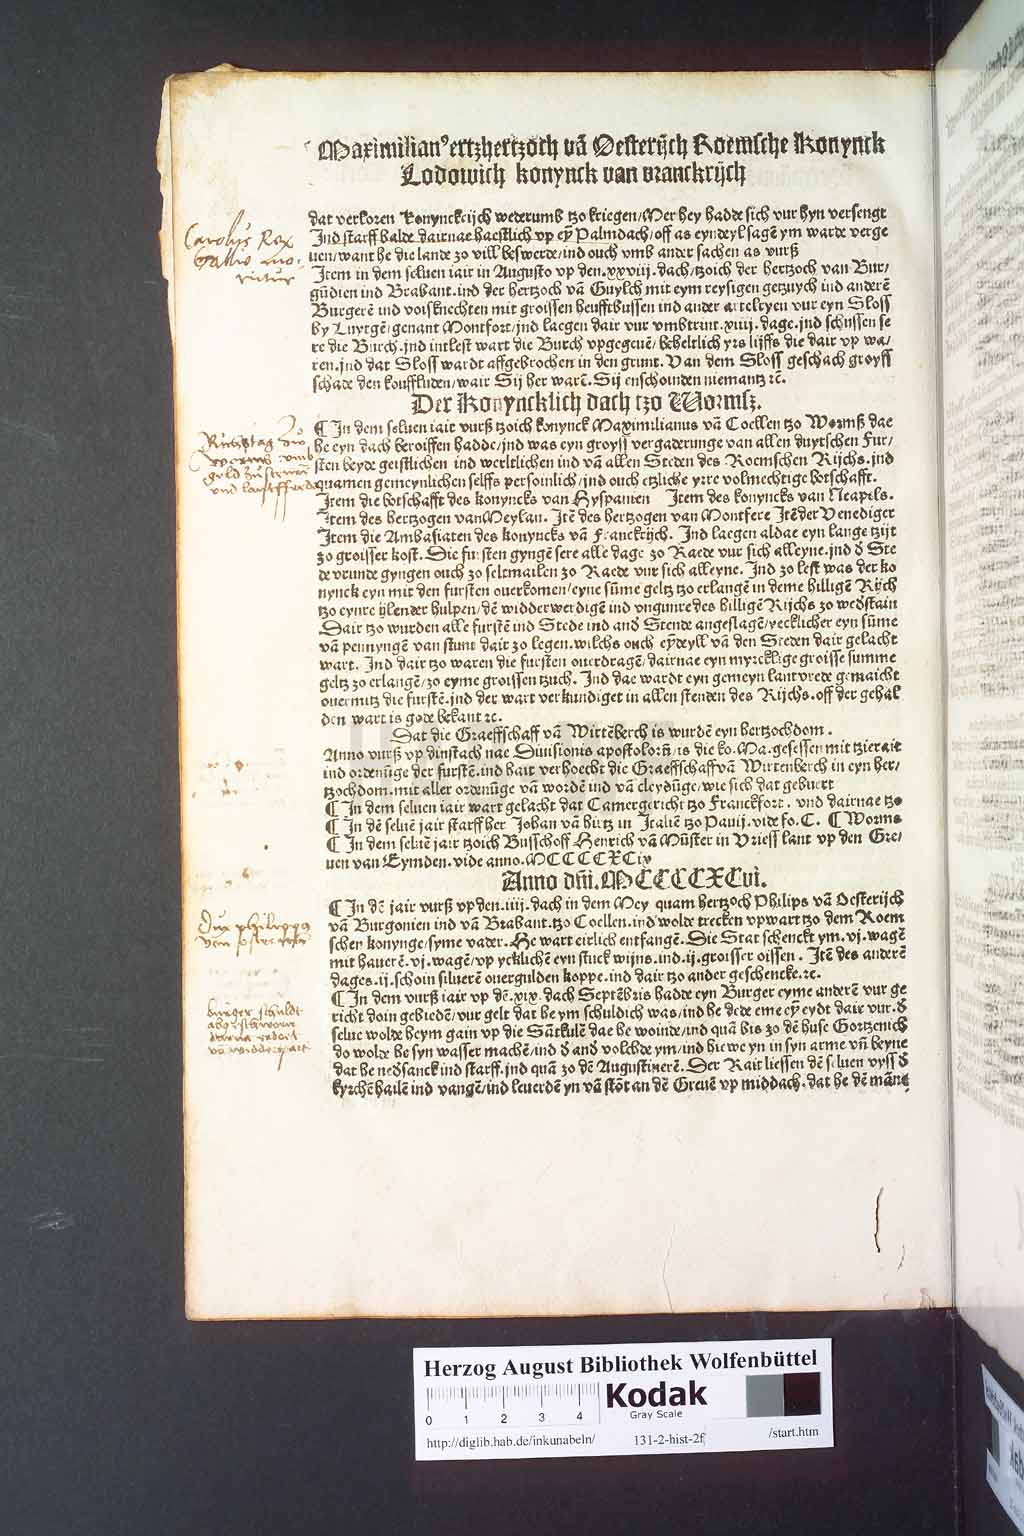 Maximilianꝰ ertzhertzoch vã Oesterijch Roemsche Konynck
Lodowich konynck van vranckrijch
dat verloren konynckrijch wederumb tzo kriegen/Mer hey hadde sich vur hyn versengt
Ind starff balde dairnae haestlich vp eỹ Palmdach/off as eyndeyl sagẽ ym warde verge
uen/want he die lande zo vill beswerde/ind ouch vmb ander sachen as vurß
Carolus Rex
Gallie mo-
ritur
Item in dem seluen iair in Augusto vp den.xxviij.dach/tzoich der hertzoch van Bur/
gũdien ind Brabant.ind der hertzoch vã Guylch mit eym reysigen getzuych ind anderẽ
Burgerẽ ind voisknechten mit groissen heufftbussen ind ander artelryen vur eyn Sloss
by Luytgẽ/genant Montfort/ind laegen dair vur vmbtrint.xiiij.dage.ind schussen se
re die Burch.ind intlest wart die Burch vpgegeuẽ/beheltlich yrs lijffs die dair vp wa/
ren.ind dat Sloss wardt affgebrochen in den grunt. Van dem Sloss geschach groyss
schade den kouffluden/wair Sij her warẽ. Sij enschoinden niemantz ꝛc̃.
Der Konyncklich dach tzo Wormsz.
¶ In dem seluen iair vurß tzoich konynck Maximilianus vã Coellen tzo Wormß dae
he eyn dach beroiffen hadde/ind was eyn groyss vergaderunge van allen duytschen Fur/
sten beyde geistlichen ind werltlichen ind vã allen Steden des Roemschen Rijchs.ind
quamen gemeynlichen selffs persoinlich/ind ouch etzliche yrre volmechtige botschafft.
Richstag zu
worms umb
geld
Item die botschafft des konyncks van Hyspanien Item des konyncks van Neapels.
Item des hertzogen van Meylan. Itẽ des hertzogen van Montfere Itẽ der Venediger
Item die Ambasiaten des konyncks vã Franckrijch. Ind laegen aldae eyn lange tzijt
zo groisser kost. Die fursten gyngẽ sere alle dage zo Raede vur sich alleyne.ind ð Ste
de vrunde gyngen ouch zo seltmailen zo Raede vur sich alleyne. Ind zo lest was der ko
nynck eyn mit den fursten ouerkomen/eyne sũme geltz tzo erlangẽ in deme hilligẽ Rijch
tzo eynre ijlender hulpen/dẽ widderwerdigẽ ind vngunre des hilligẽ Rijchs zo wedstain
Dair tzo wurden alle furstẽ ind Stede ind and Stende angeslagẽ/yecklicher eyn sũme
vã pennyngẽ van stunt dair zo legen.wilchs ouch eỹdeyll vã den Steden dair gelacht
wart. Ind dair tzo waren die fursten ouerdragẽ/dairnae eyn myrcklige groisse summe
geltz zo erlangẽ/zo eyme groissen tzuch. Ind dae wardt eyn gemeyn lantvrede gemaicht
ouermitz die furstẽ.ind der wart verkundiget in allen stenden des Rijchs.off der gehal
den wart is gode bekant ꝛc.
Dat die Graeffschaff vã Wirtẽberch is wurdẽ eyn hertzochdom.
Anno vurß vp dinstach nae Diuisionis apostolorũ/is die ko.Ma.gesessen mit tzierait
ind ordenũge der furstẽ.ind hait verhoecht die Graeffschaff vã Wirtenberch in eyn her/
tzochdom.mit aller ordenũge van wordẽ ind vã cleydũge/wie sich dat gebuert
¶ In dem seluen iair wart gelacht dat Camergericht tzo Franckfort. vnd dairnae tzo
¶ In dẽ seluẽ jair starff her Johan vã hirtz in Italiẽ tzo Pauij.vide fo.C. ¶ Worms
¶ In dem seluẽ jair tzoich Busschoff Henrich vã Mũster in Vriess lant vp den Gre/
uen van Eymden.vide anno.MCCCCXCiv
Anno dñi.MCCCCXCvi.
¶ In dẽ jair vurß vp den.iij.dach in dem Mey quam hertzoch Philips vã Oesterijch
vã Burgonien ind vã Brabant.tzo Coellen.ind wolde trecken vpwart tzo dem Roem
schen konynge/syme vader. He wart eirlich entfangẽ. Die Stat schenckt ym.vj.wagẽ
mit hauerẽ.vj.wagẽ/vp ycklichẽ eyn stuck wijns.ind.ij.groisser oissen. Itẽ des anderẽ
dages.ij.schoin siluerẽ ouergulden koppe.ind dair tzo ander geschencke.ꝛc.
Dux philippus
von
¶ In dem vurß iair vp dẽ.xix.dach Septẽbris hadde eyn Burger eyme anderẽ vur ge
richt doin gebiedẽ/vur gelt dat he ym schuldich was/ind he dede eme eỹ eydt dair vur.ð
selue wolde heym gain vp die Sãtkulẽ dae he woinde/ind quã bis zo dẽ huse Gortzenich
do wolde he syn wasser machẽ/ind ð and volchde ym/ind hiewe yn in syn arme vñ beyne
dat he nedsanck ind starff.ind quã zo dẽ Augustinerẽ. Der Rait liessen dẽ seluen vyss ð
kyrchẽ hailẽ ind vangẽ/ind leuerdẽ yn vã stõt an dẽ Greuẽ vp middach.dat he dẽ mãne
burger schuldt
abgeschworn
Herzog August Bibliothek Wolfenbüttel
0 1 2 3 4
Kodak
Gray Scale
http://diglib.hab.de/inkunabeln/ 131-2-hist-2f /start.htm